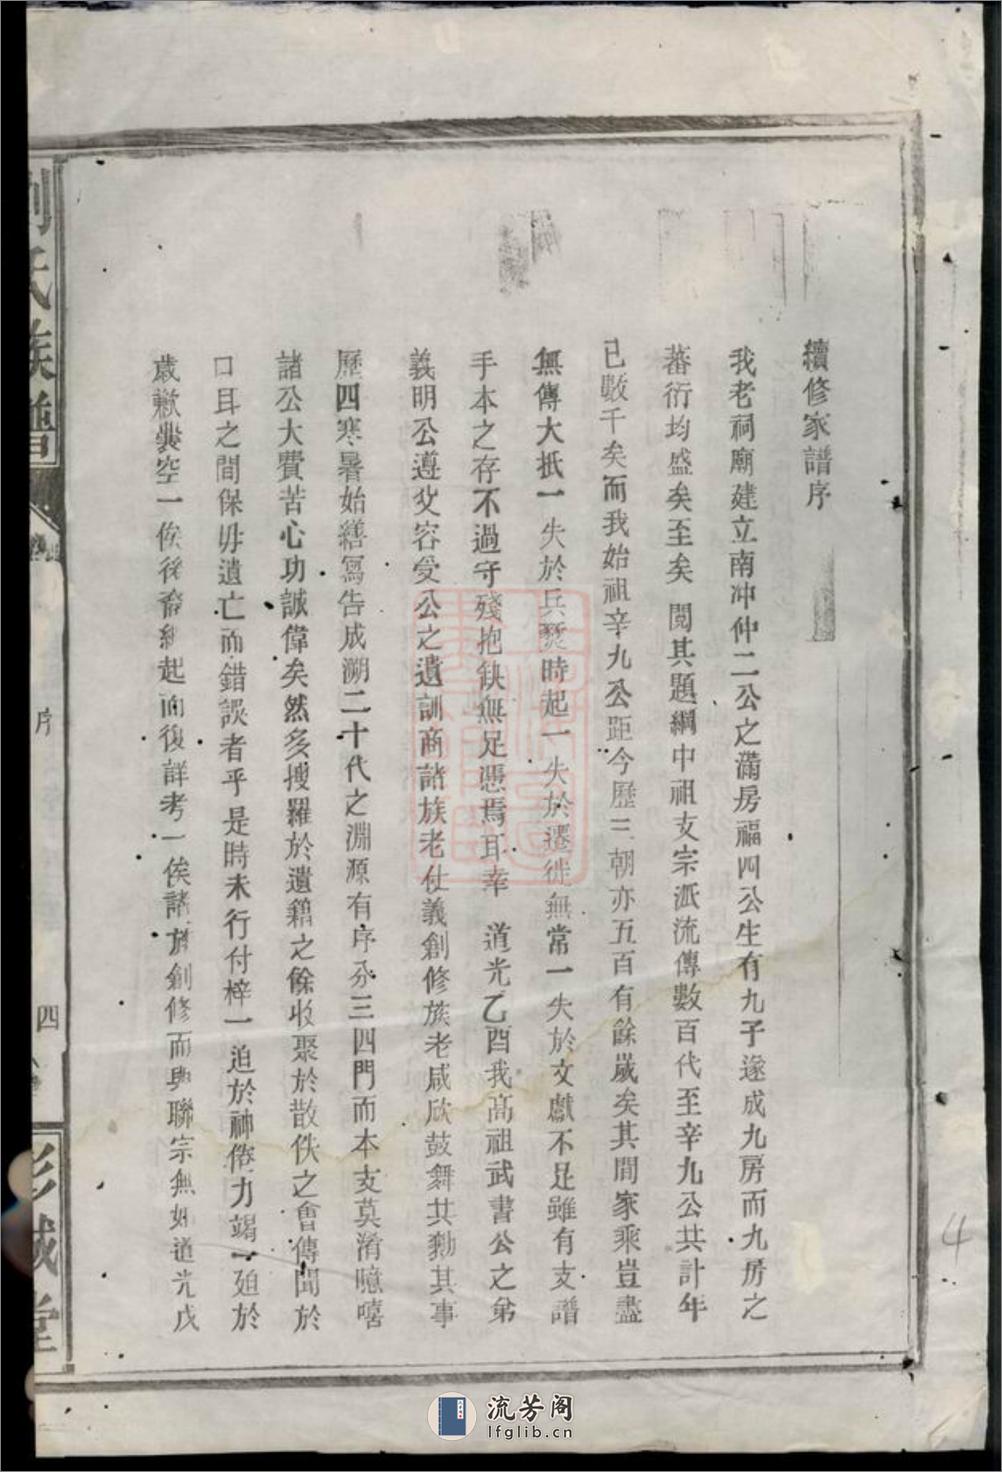 續修家譜序
我老祠廟建立南冲仲二公之滿房福四公生有九子遂成九房而九房之
蕃衍均盛矣至矣閱其題綱中祖支宗派流傳數百代至辛九公共計年
已數千矣而我始祖辛九公距今歷三朝亦五百有餘歲矣其間家乘豈盡
無傳大抵一失於兵燹時起一失於遷徙無常一失於文獻不足雖有支譜
手本之存不過守殘抱缺無足憑焉耳幸 道光乙酉我高祖武書公之弟
義明公遵父容受公之遺訓商諸族老仕義創修族老咸欣鼓舞共勷其事
歷四寒暑始繕寫告成溯二十代之淵源有序分三四門而本支莫淆噫嘻
諸公大費苦心功誠偉矣然多搜羅於遺籍之餘收聚於散佚之會傳聞於
口耳之間保毋遺亡而錯誤者乎是時未行付梓一迫於神倦力竭一廹於
歲歉囊空一俟後裔繼起而復詳考一俟諸族創修而興聯宗無如道光戊
劉氏族譜
序
四
彭城堂
4
流芳阁
lfglib.cn